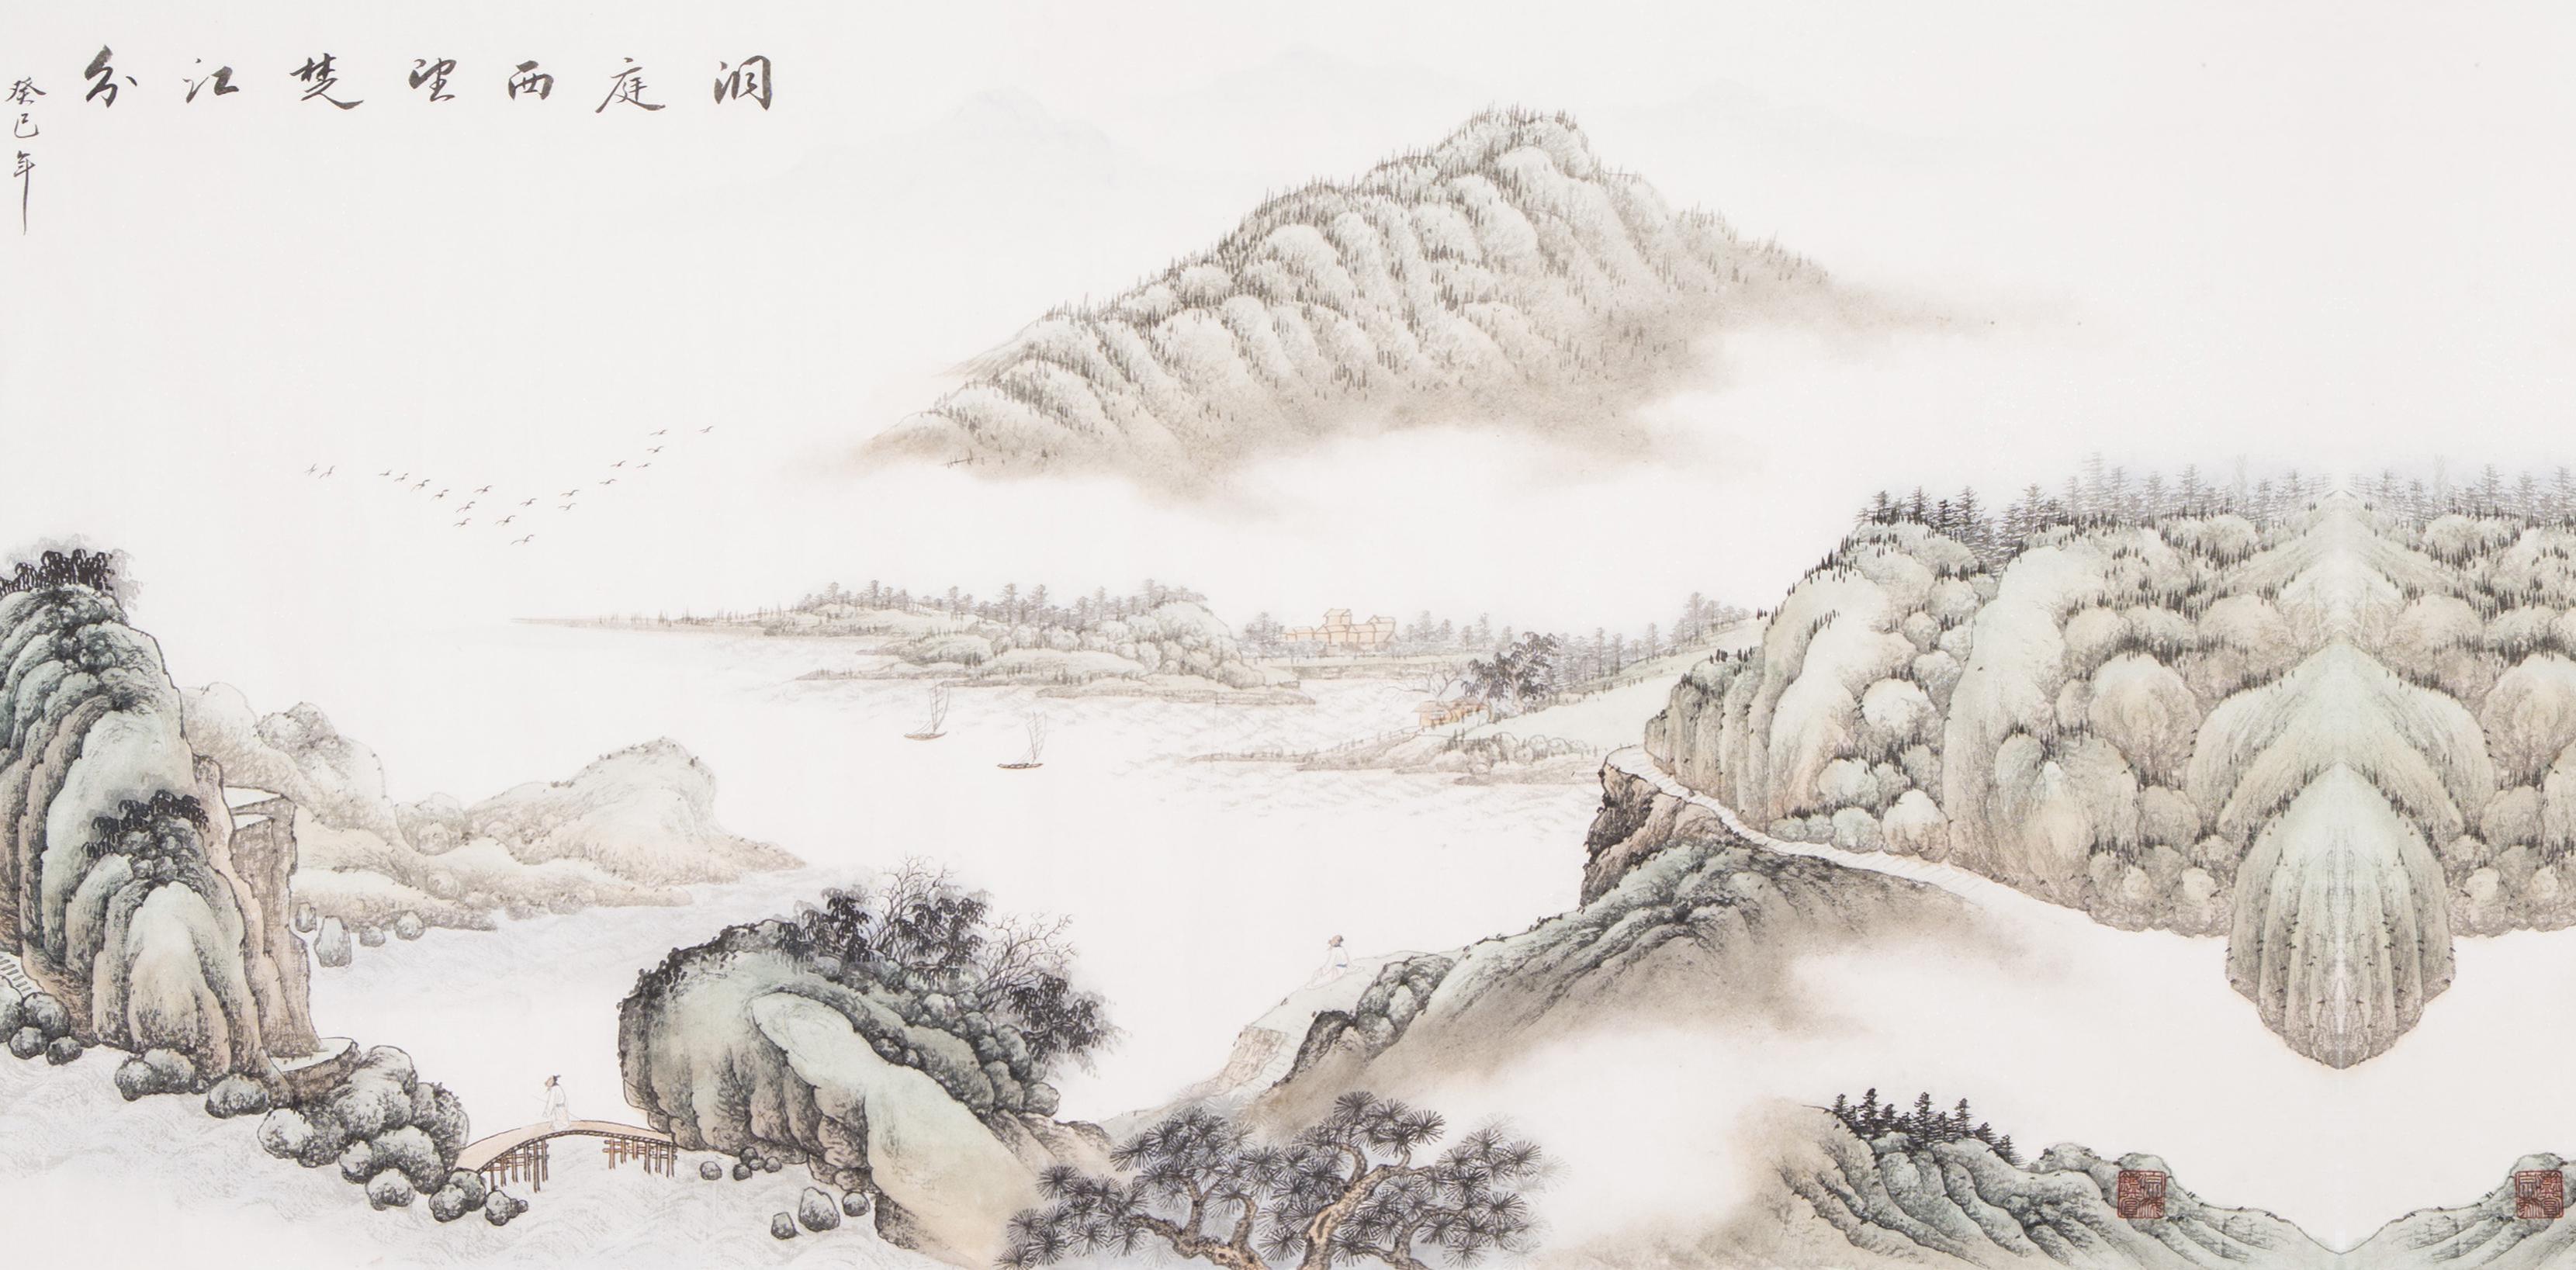 洞庭西望楚江分
癸巳年